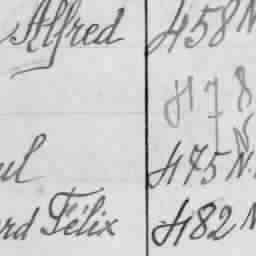 Alfred 458 N
478
N
ul 475 N.
rd Félix 482 N